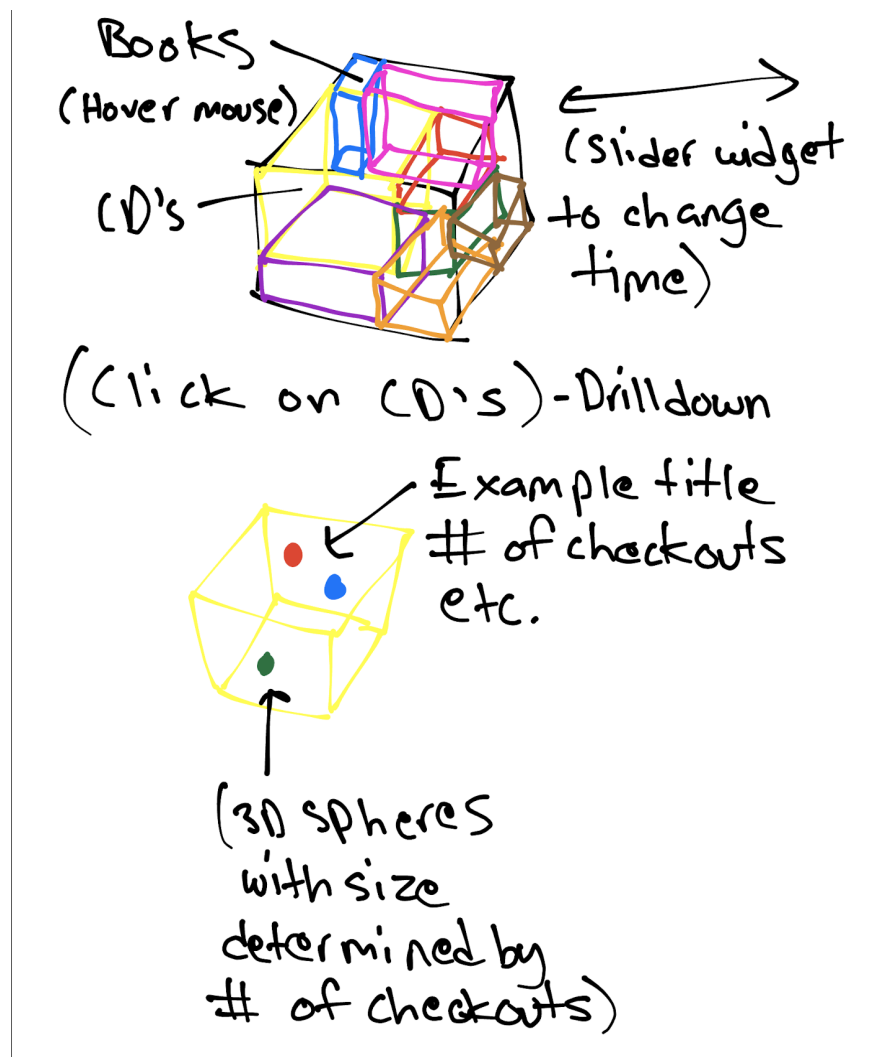 Books
(Hover mouse)
CD's
(slider widget
to change
time)
(Click on CD's)-Drilldown
Example title
# of checkouts
etc.
(3D spheres
with size
determined by
# of checkouts)